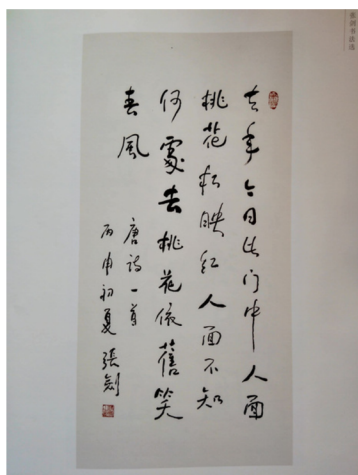 去年今日此门中人面
桃花相映红人面不知
何處去桃花依舊笑
春風
唐诗一首
丙申初夏 張剑